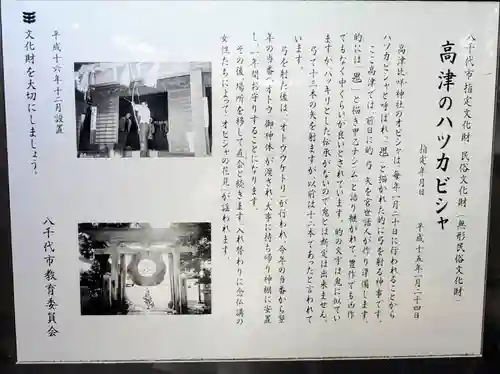 八千代市 指定文化財 民俗文化財(無形民俗文化財)
高津のハツカビシャ
指定年月日 平成十五年一月二十四日
高津比咩神社のオビシャは、毎年一月二十日に行われることから
ハツカビシャと呼ばれ、「鬼」と描かれた的に弓を射る神事です。
ここ高津では、前日に的・弓・矢を宮世話人が作り準備します。
的には「鬼」と描き「甲乙ナシム」と語り継がれて、豊作でも凶作
でもなく中くらいが良いとされています。的の文字は鬼に似てい
ますが、ハッキリとした伝承がないので鬼とは断定は出来ません。
弓で十三本の矢を射ますが、以前は十二本であったと言われて
います。
弓を射た後は、「オトウウケトリ」が行われ、今年の当番から翌
年の当番へ「オトウ」(御神体)が渡され、大事に持ち帰り神棚に安置
し、一年間お守りすることになります。
その後、場所を移して直会と続きます。入れ替わりに念仏講の
女性たちによって「オビシャの花見」が謡われます。
平成十六年十二月設置
文化財を大切にしましょう。
八千代市教育委員会